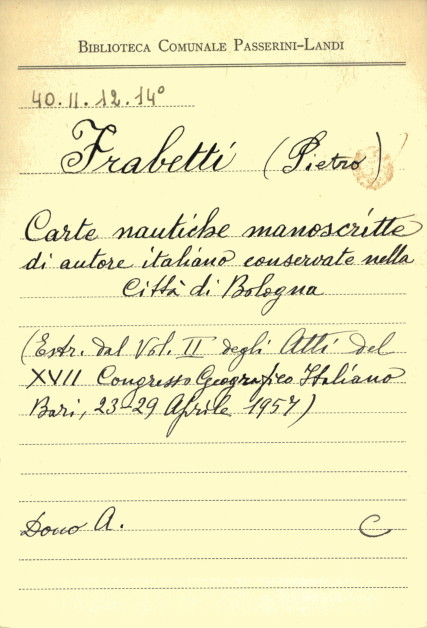 BIBLIOTECA COMUNALE PASSERINI-LANDI
40.II.12.14°
Frabetti (Pietro)
Carte nautiche manoscritte
di autore italiano conservate nella
Città di Bologna
(Estr. dal Vol. II degli Atti del
XVII Congresso Geografico Italiano
Bari, 23-29 Aprile 1957)
Dono A. C